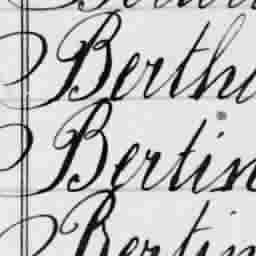 Berth
Bertin
Bertin